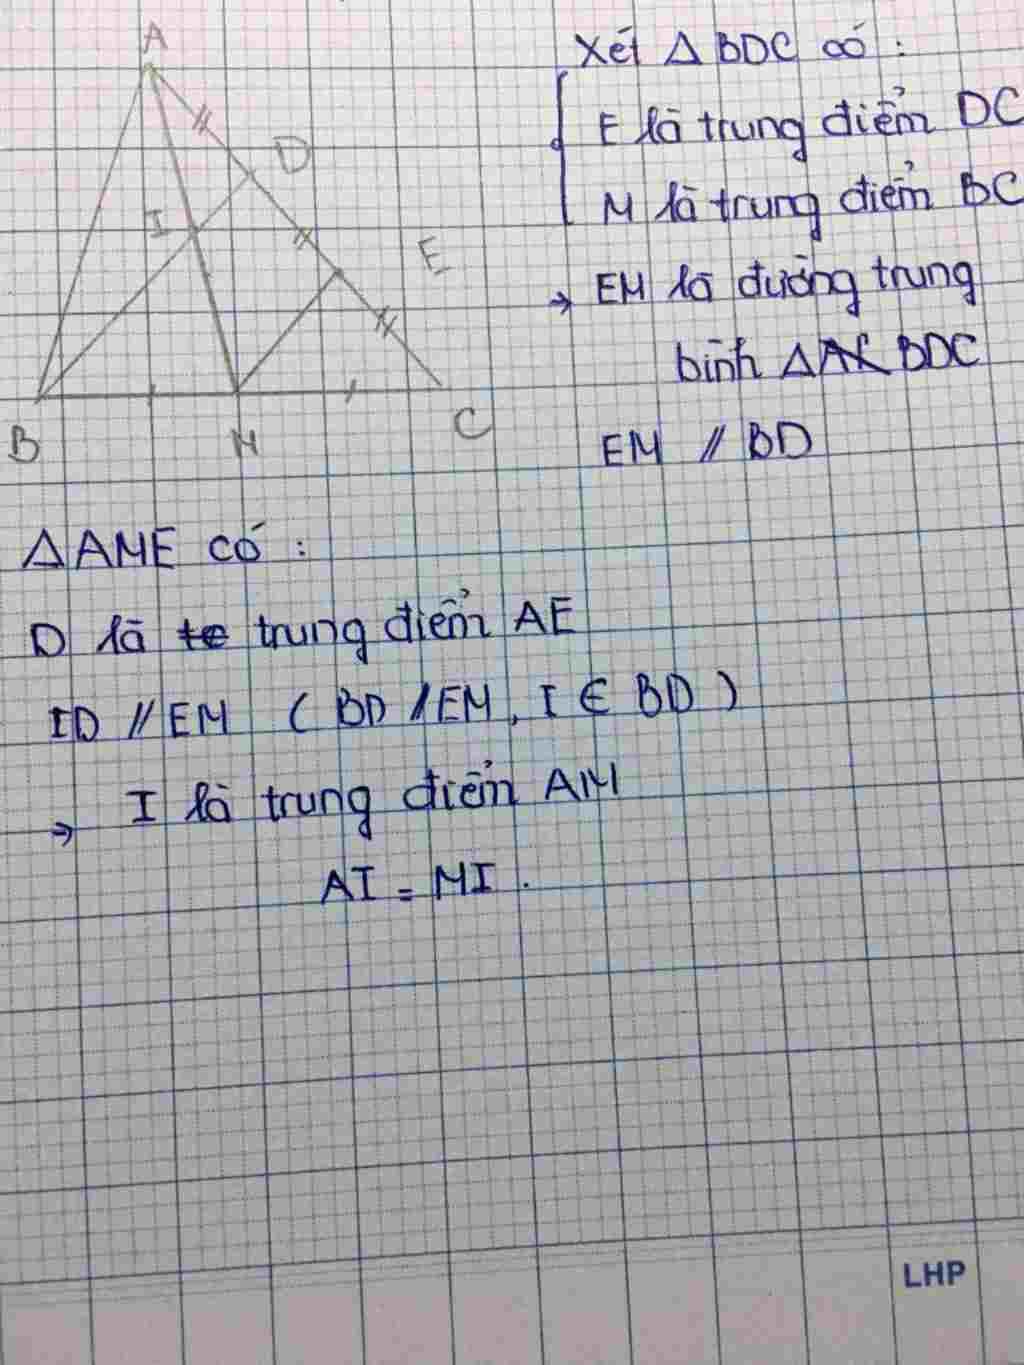 A
D
I
E
B
M
C
Xét △ BDC có :
E là trung điểm DC
M là trung điểm BC
→ EM là đường trung
bình △ BDC
EM // BD
△AME có :
D là trung điểm AE
ID // EM ( BD // EM, I ∈ BD )
→ I là trung điểm AM
AI = MI .
LHP